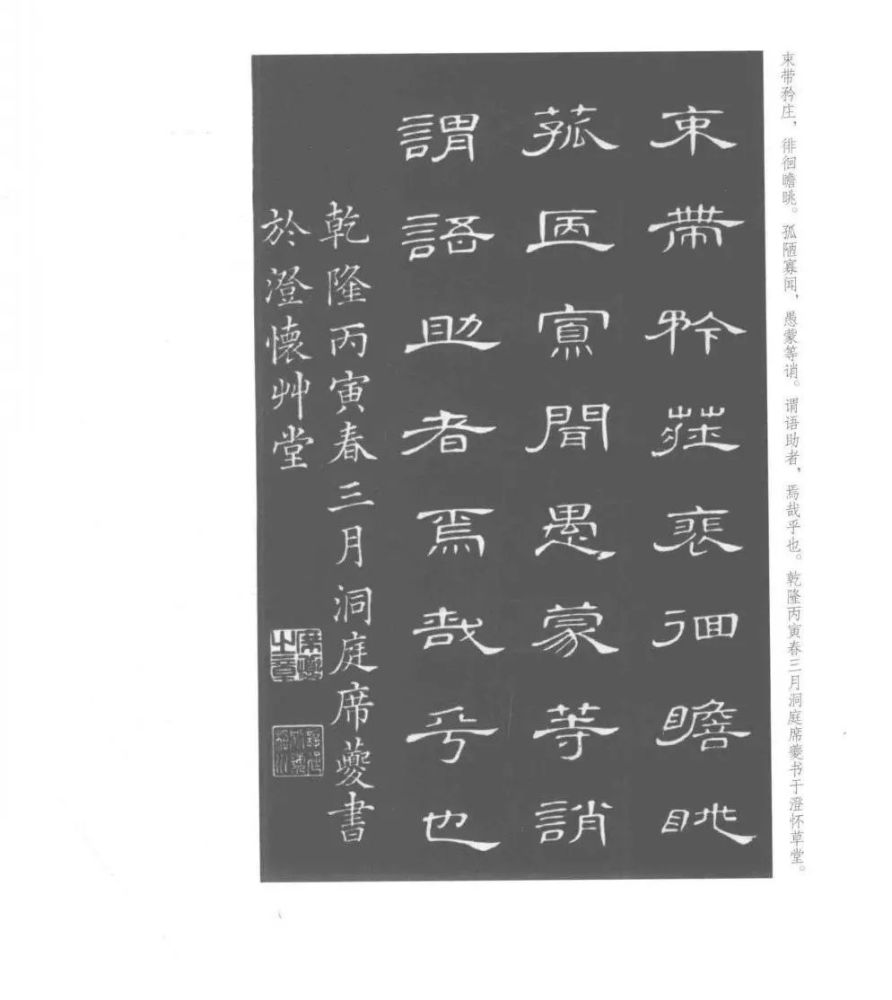 束带矜庄，徘徊瞻眺。孤陋寡闻，愚蒙等诮。谓语助者，焉哉乎也。乾隆丙寅春三月洞庭席夔书于澄怀草堂。
束帶矜莊裵徊瞻眺
孤陋寡聞愚蒙等誚
謂語助者焉哉乎也
乾隆丙寅春三月洞庭席夔書
於澄懷艸堂